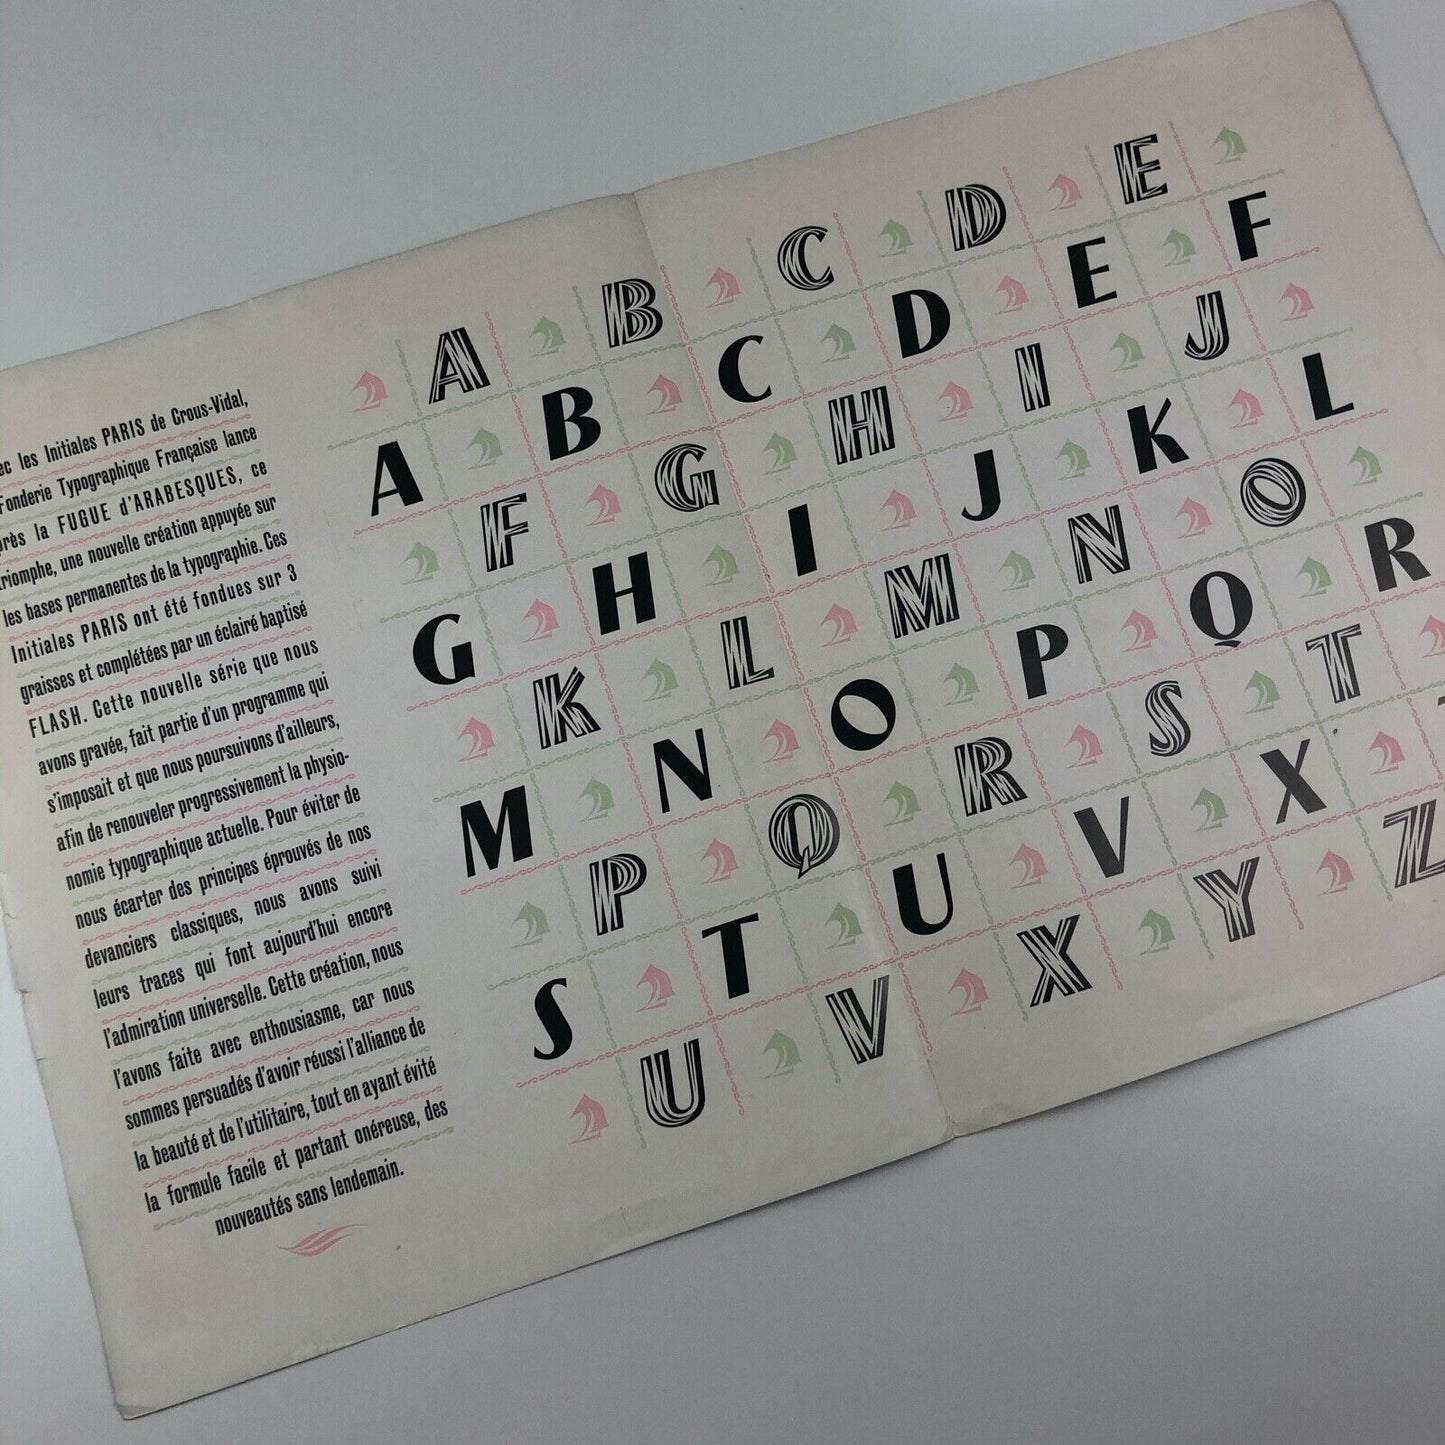 les Initiales PARIS de Crous-Vidal,
Fonderie Typographique Française lance
la FUGUE d'ARABESQUES, ce
triomphe, une nouvelle création appuyée sur
les bases permanentes de la typographie. Ces
Initiales PARIS ont été fondues sur 3
graisses et complétées par un éclairé baptisé
FLASH. Cette nouvelle série que nous
avons gravée, fait partie d'un programme qui
s'imposait et que nous poursuivons d'ailleurs,
afin de renouveler progressivement la physio-
nomie typographique actuelle. Pour éviter de
nous écarter des principes éprouvés de nos
devanciers classiques, nous avons suivi
leurs traces qui font aujourd'hui encore
l'admiration universelle. Cette création, nous
l'avons faite avec enthousiasme, car nous
sommes persuadés d'avoir réussi l'alliance de
la beauté et de l'utilitaire, tout en ayant évité
la formule facile et partant onéreuse, des
nouveautés sans lendemain.
A B C D E
A B C D E F
F G H I J
G H I J K L
K L M N O
M N O P Q R
P Q R S T
S T U V X
U V X Y Z